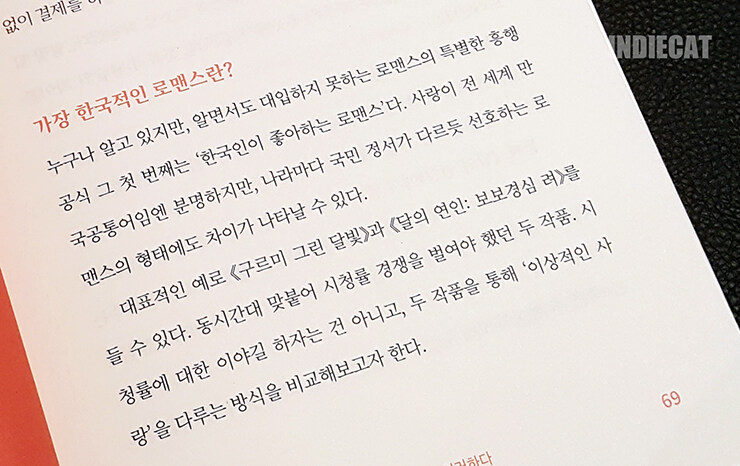 없이 결제를 하
INDIECAT
가장 한국적인 로맨스란?
누구나 알고 있지만, 알면서도 대입하지 못하는 로맨스의 특별한 흥행
공식 그 첫 번째는 ‘한국인이 좋아하는 로맨스’다. 사랑이 전 세계 만
국공통어임엔 분명하지만, 나라마다 국민 정서가 다르듯 선호하는 로
맨스의 형태에도 차이가 나타날 수 있다.
대표적인 예로 《구르미 그린 달빛》과 《달의 연인: 보보경심 려》를
들 수 있다. 동시간대 맞붙어 시청률 경쟁을 벌여야 했던 두 작품. 시
청률에 대한 이야길 하자는 건 아니고, 두 작품을 통해 ‘이상적인 사
랑’을 다루는 방식을 비교해보고자 한다.
69